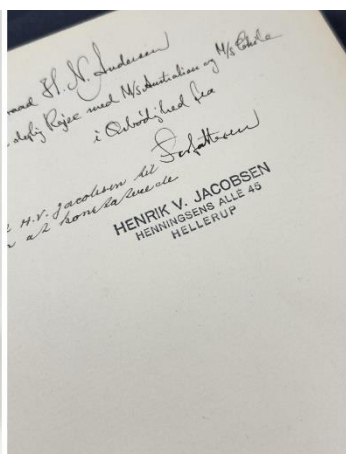 H. N. Andersen
Rejse med M/s Australien og M/s Chile
i Ærbødighed fra
Forfatteren
H. V. Jacobsen til
at konstaterede
HENRIK V. JACOBSEN
HENNINGSENS ALLÉ 45
HELLERUP